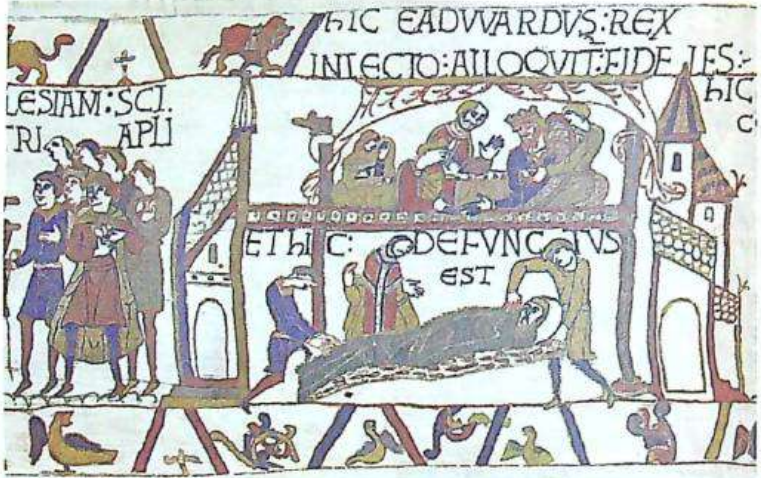 HIC EADVVARDVS:REX
INLECTO:ALLOQVIT:FIDELES:
LESIAM:SCI.
TRI APLI
HIC
C
ET HIC: DEFVNCTVS
EST